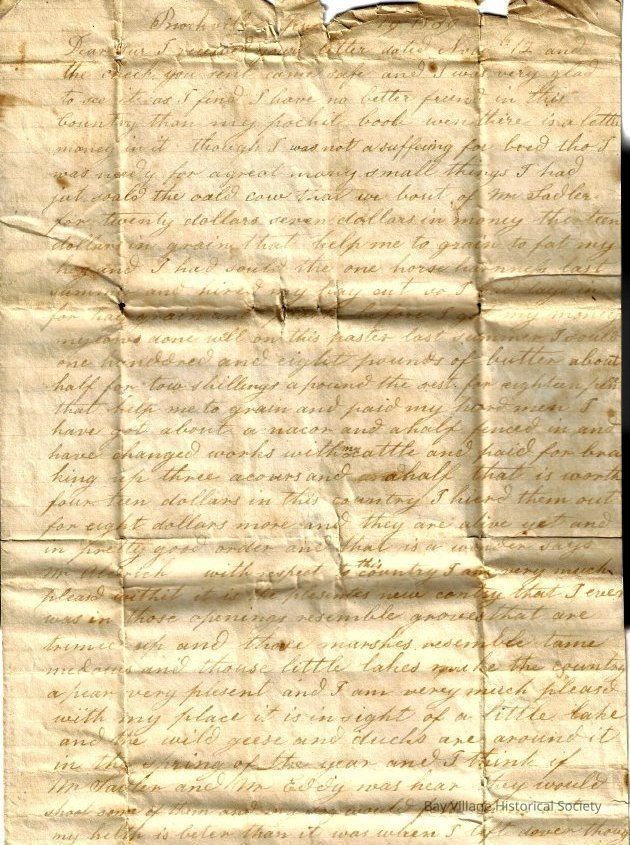 Dear Sur I receive your letter dated Nov th 12 and
the check you sent came safe and I was very glad
to see it as I find I have no better friend in this
Country than my pockit book wen there is a little
money in it though I was not a suffering for bred tho I
was needy for a great many small things I had
jut soald the oald cow that we bout of Mr Sadler
for twenty dollars seven dollars in money thirteen
dollars in grain that help me to grain to fat my
hog and I had sould the one horse harnness last
and hired my hay cut so I
for
my cows done well on this paster last summer I sould
one hundred and eight pounds of butter about
half for tow shillings a pound the rest for eighteen
that help me to grain and paid my hierd men I
have got about a nacor and a half fenced in and
have changed works with my cattle and paid for bra
king up three acoers and a half that is worth
four teen dollars in this country I hierd them out
for eight dollars more and they are alive yet and
in pretty good order and that is a wonder says
Mr with respect to this country I am very much
pleasd with it it is the plesentes new contry that I ever
was in those openings resemble groves that are
trimed up and those marshes resemble tame
medows and thouse little lakes make the country
a pear very plesent and I am very much pleased
with my place it is in sight of a little lake
and the wild geese and ducks are around it
in the spring of the year and I think if
Mr Sadler and Mr Eddy was hear they would
shoot some of them and my would
my helth is beter than it was when I left dover though
Bay Village Historical Society